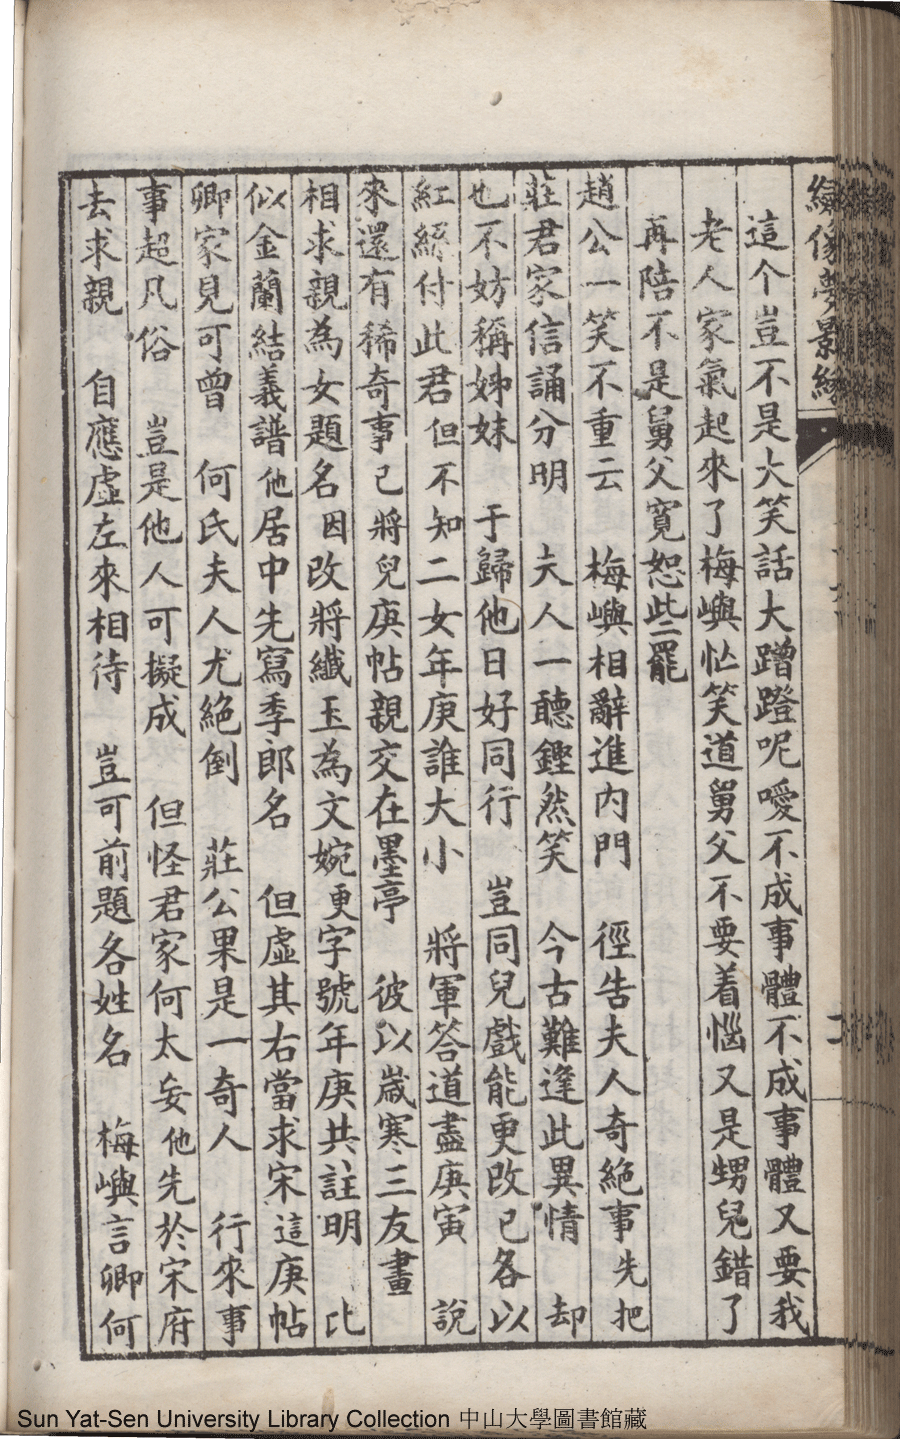 繪像夢影緣
這个豈不是大笑話大蹭蹬呢噯不成事體不成事體又要我
老人家氣起來了梅嶼忙笑道舅父不要着惱又是甥兒錯了
再陪不是舅父寬恕此二罷
趙公一笑不重云 梅嶼相辭進內門 徑告夫人奇絕事先把
莊君家信誦分明 夫人一聽鏗然笑 今古難逢此異情 却
也不妨稱姊妹 于歸他日好同行 豈同兒戲能更改已各以
紅絲付此君但不知二女年庚誰大小 將軍答道盡庚寅 說
來還有稀奇事已將兒庚帖親交在墨亭 彼以歲寒三友畫
相求親為女題名因改將纖玉為文婉更字號年庚共註明 比
似金蘭結義譜他居中先寫季郎名 但虛其右當求宋這庚帖
卿家見可曾 何氏夫人尤絕倒 莊公果是一奇人 行來事
事超凡俗 豈是他人可擬成 但怪君家何太妄他先於宋府
去求親 自應虛左來相待 豈可前題各姓名 梅嶼言卿何
Sun Yat-Sen University Library Collection 中山大學圖書館藏